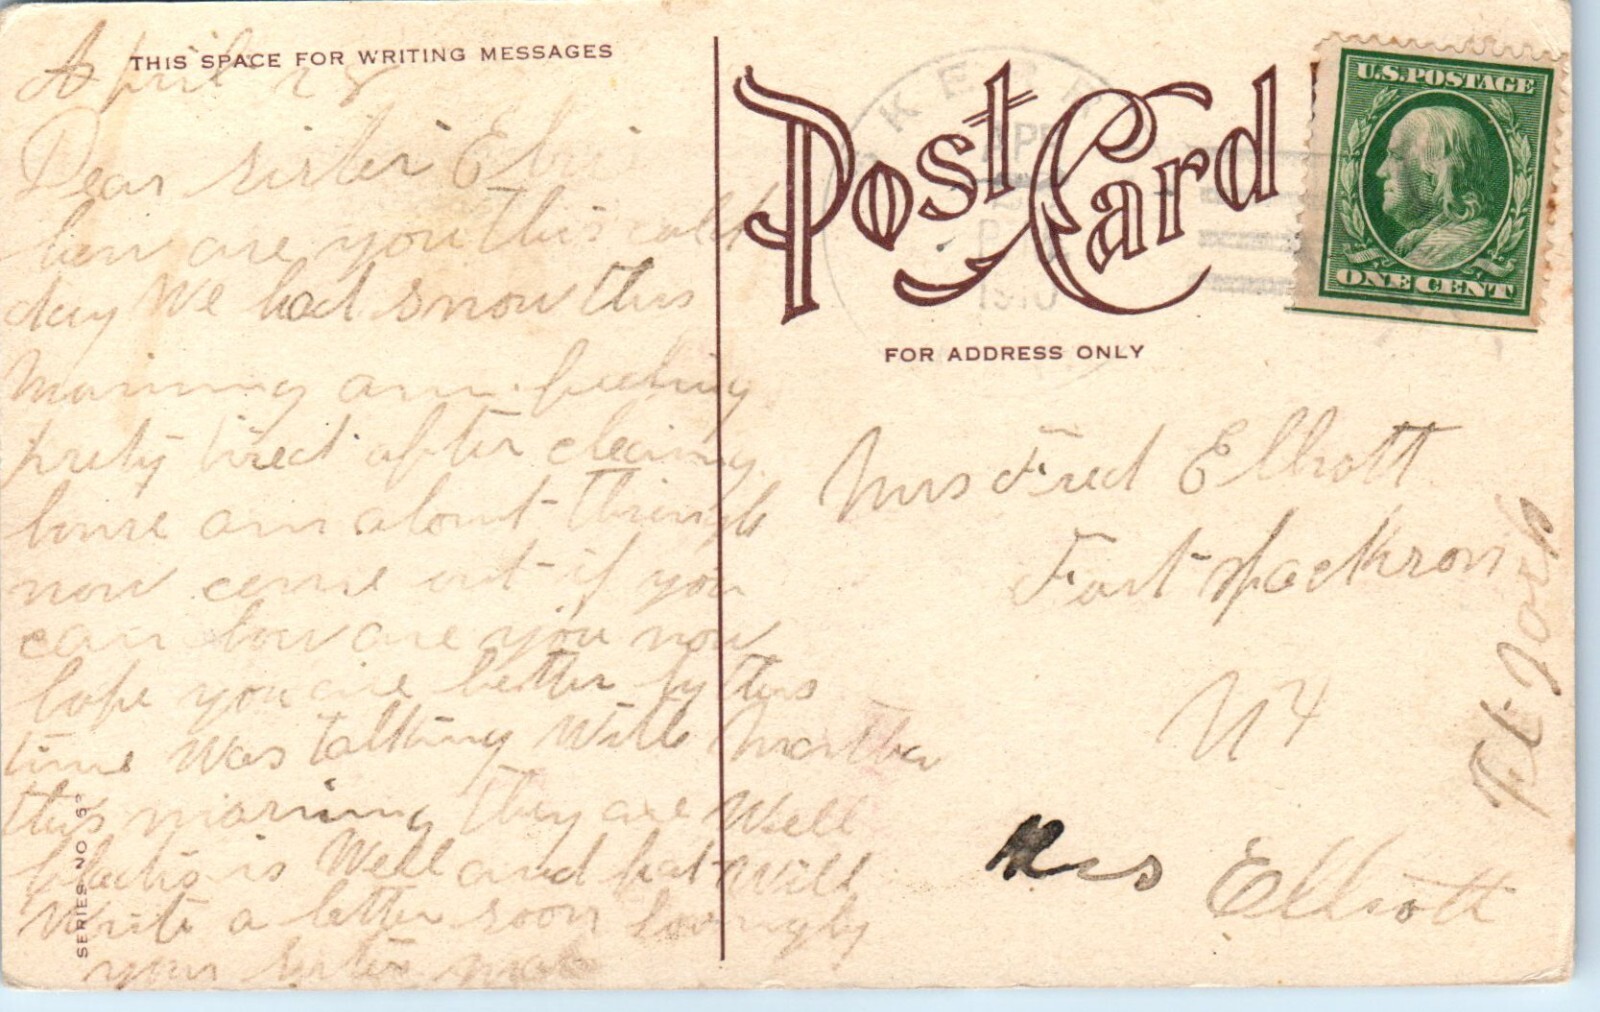 THIS SPACE FOR WRITING MESSAGES
April 28
Dear sister
how are you this cold
day We had snow this
morning am feeling
prety tired after cleaning
house am about through
now come out if you
can how are you now
hope you are better by this
time Was talking With Martha
this morning they are Well
is Well and fat Will
Write a letter soon lovingly
your sister
SERIES NO 6
Post Card
FOR ADDRESS ONLY
APR
P
1910
U.S.POSTAGE
ONE CENT
Mrs Fred Elliott
Fort Jackson
NY
Mrs Elliott
Ft. Jack